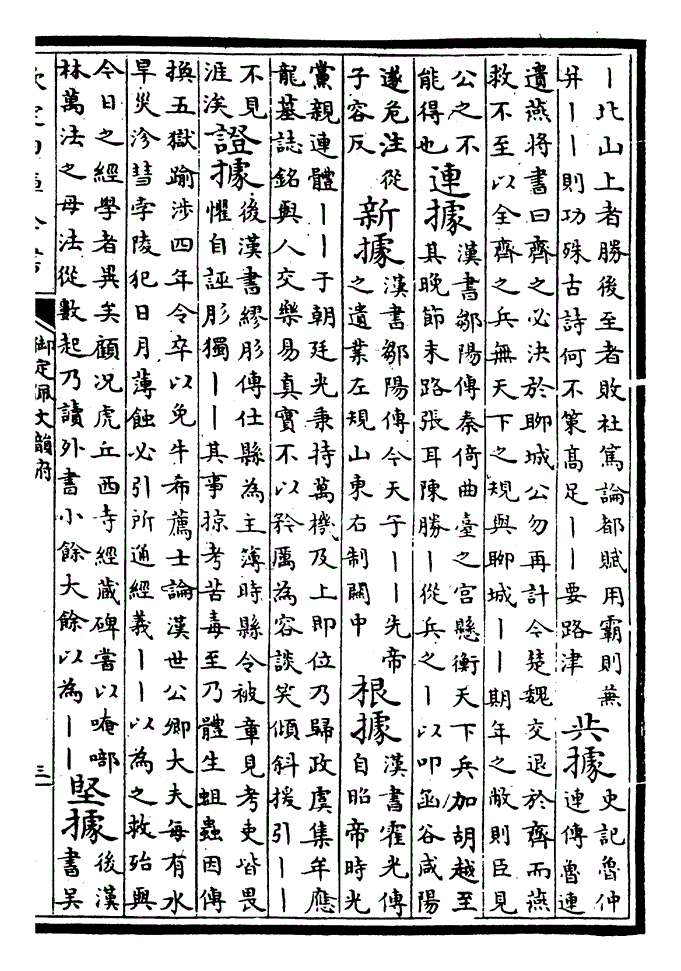 丨北山上者勝後至者敗杜篤論都賦用霸則兼
并丨丨則功殊古詩何不策高足丨丨要路津
共據
史記魯仲
連傳魯連
遺燕將書曰齊之必決於聊城公勿再計今楚魏交退於齊而燕
救不至以全齊之兵無天下之規與聊城丨丨期年之敝則臣見
公之不
能得也
連據
漢書鄒陽傳秦倚曲臺之宮懸衡天下兵加胡越至
其晚節末路張耳陳勝丨從兵之丨以叩函谷咸陽
遂危注從
子容反
新據
漢書鄒陽傳今天子丨丨先帝
之遺業左規山東右制關中
根據
漢書霍光傳
自昭帝時光
黨親連體丨丨于朝廷光秉持萬機及上即位乃歸政虞集年應
龍墓誌銘與人交樂易真實不以矜厲為容談笑傾斜援引丨丨
不見
涯涘
證據
後漢書繆肜傳仕縣為主簿時縣令被章見考吏皆畏
懼自誣肜獨丨丨其事掠考苦毒至乃體生蛆蟲因傳
換五獄踰涉四年令卒以免牛布薦士論漢世公卿大夫每有水
旱災沴彗孛陵犯日月薄蝕必引所通經義丨丨以為之救殆與
今日之經學者異矣顧况虎丘西寺經藏碑嘗以唵
林萬法之母法從數起乃讀外書小餘大餘以為丨丨
堅據
後漢
書吳
欽定四庫全書
御定佩文韻府
三